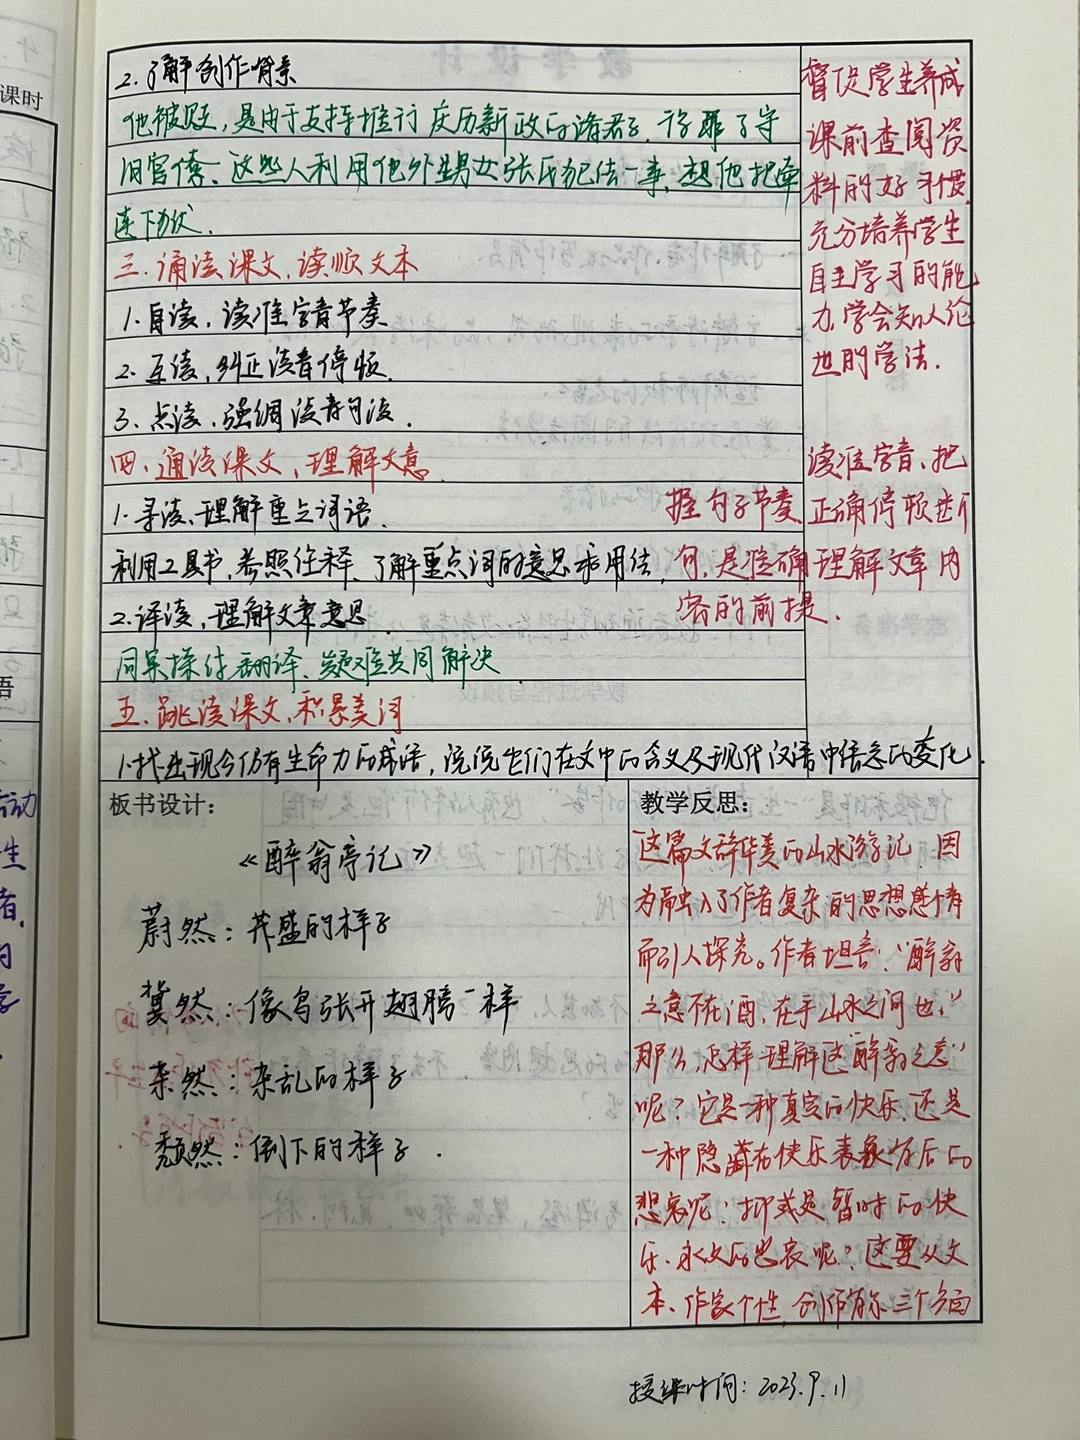 2.了解创作背景
他被贬,是由于支持推行庆历新政的诸君子,得罪了守
旧官僚、这些人利用他外甥女张氏犯法一事,想他把牵
连下狱.
三.诵读课文,读顺文本
1.自读,读准字音节奏
2.互读,纠正读音停顿.
3.点读,强调读音句读.
四.通读课文,理解文意.
1.寻读,理解重点词语.
利用工具书,参照注释、了解重点词的意思和用法,
2.译读,理解文章意思.
同桌探讨翻译、疑难共同解决
五.跳读课文,积累美词
1.找出现今仍有生命力的成语,说说它们在文中的含义及现代汉语中信息的变化.
督促学生养成
课前查阅资
料的好习惯.
充分培养学生
自主学习的能
力,学会知人论
世的学法.
读准字音、把
握句子节奏、正确停顿断
句,是准确理解文章内
容的前提.
板书设计:
《醉翁亭记》
蔚然:茂盛的样子
翼然:像鸟张开翅膀一样
杂然:杂乱的样子
颓然:倒下的样子.
教学反思:
这篇文辞华美的山水游记,因
为融入了作者复杂的思想感情
而引人探究。作者坦言:“醉翁
之意不在酒,在乎山水之间也,”
那么,怎样理解这“醉翁之意”
呢?它是一种真实的快乐,还是
一种隐藏在快乐表象背后的
悲哀呢;抑或是暂时的快
乐、永久的悲哀呢?这要从文
本、作家个性,创作背景三个方面
授课时间:2023.9.11
课时
语